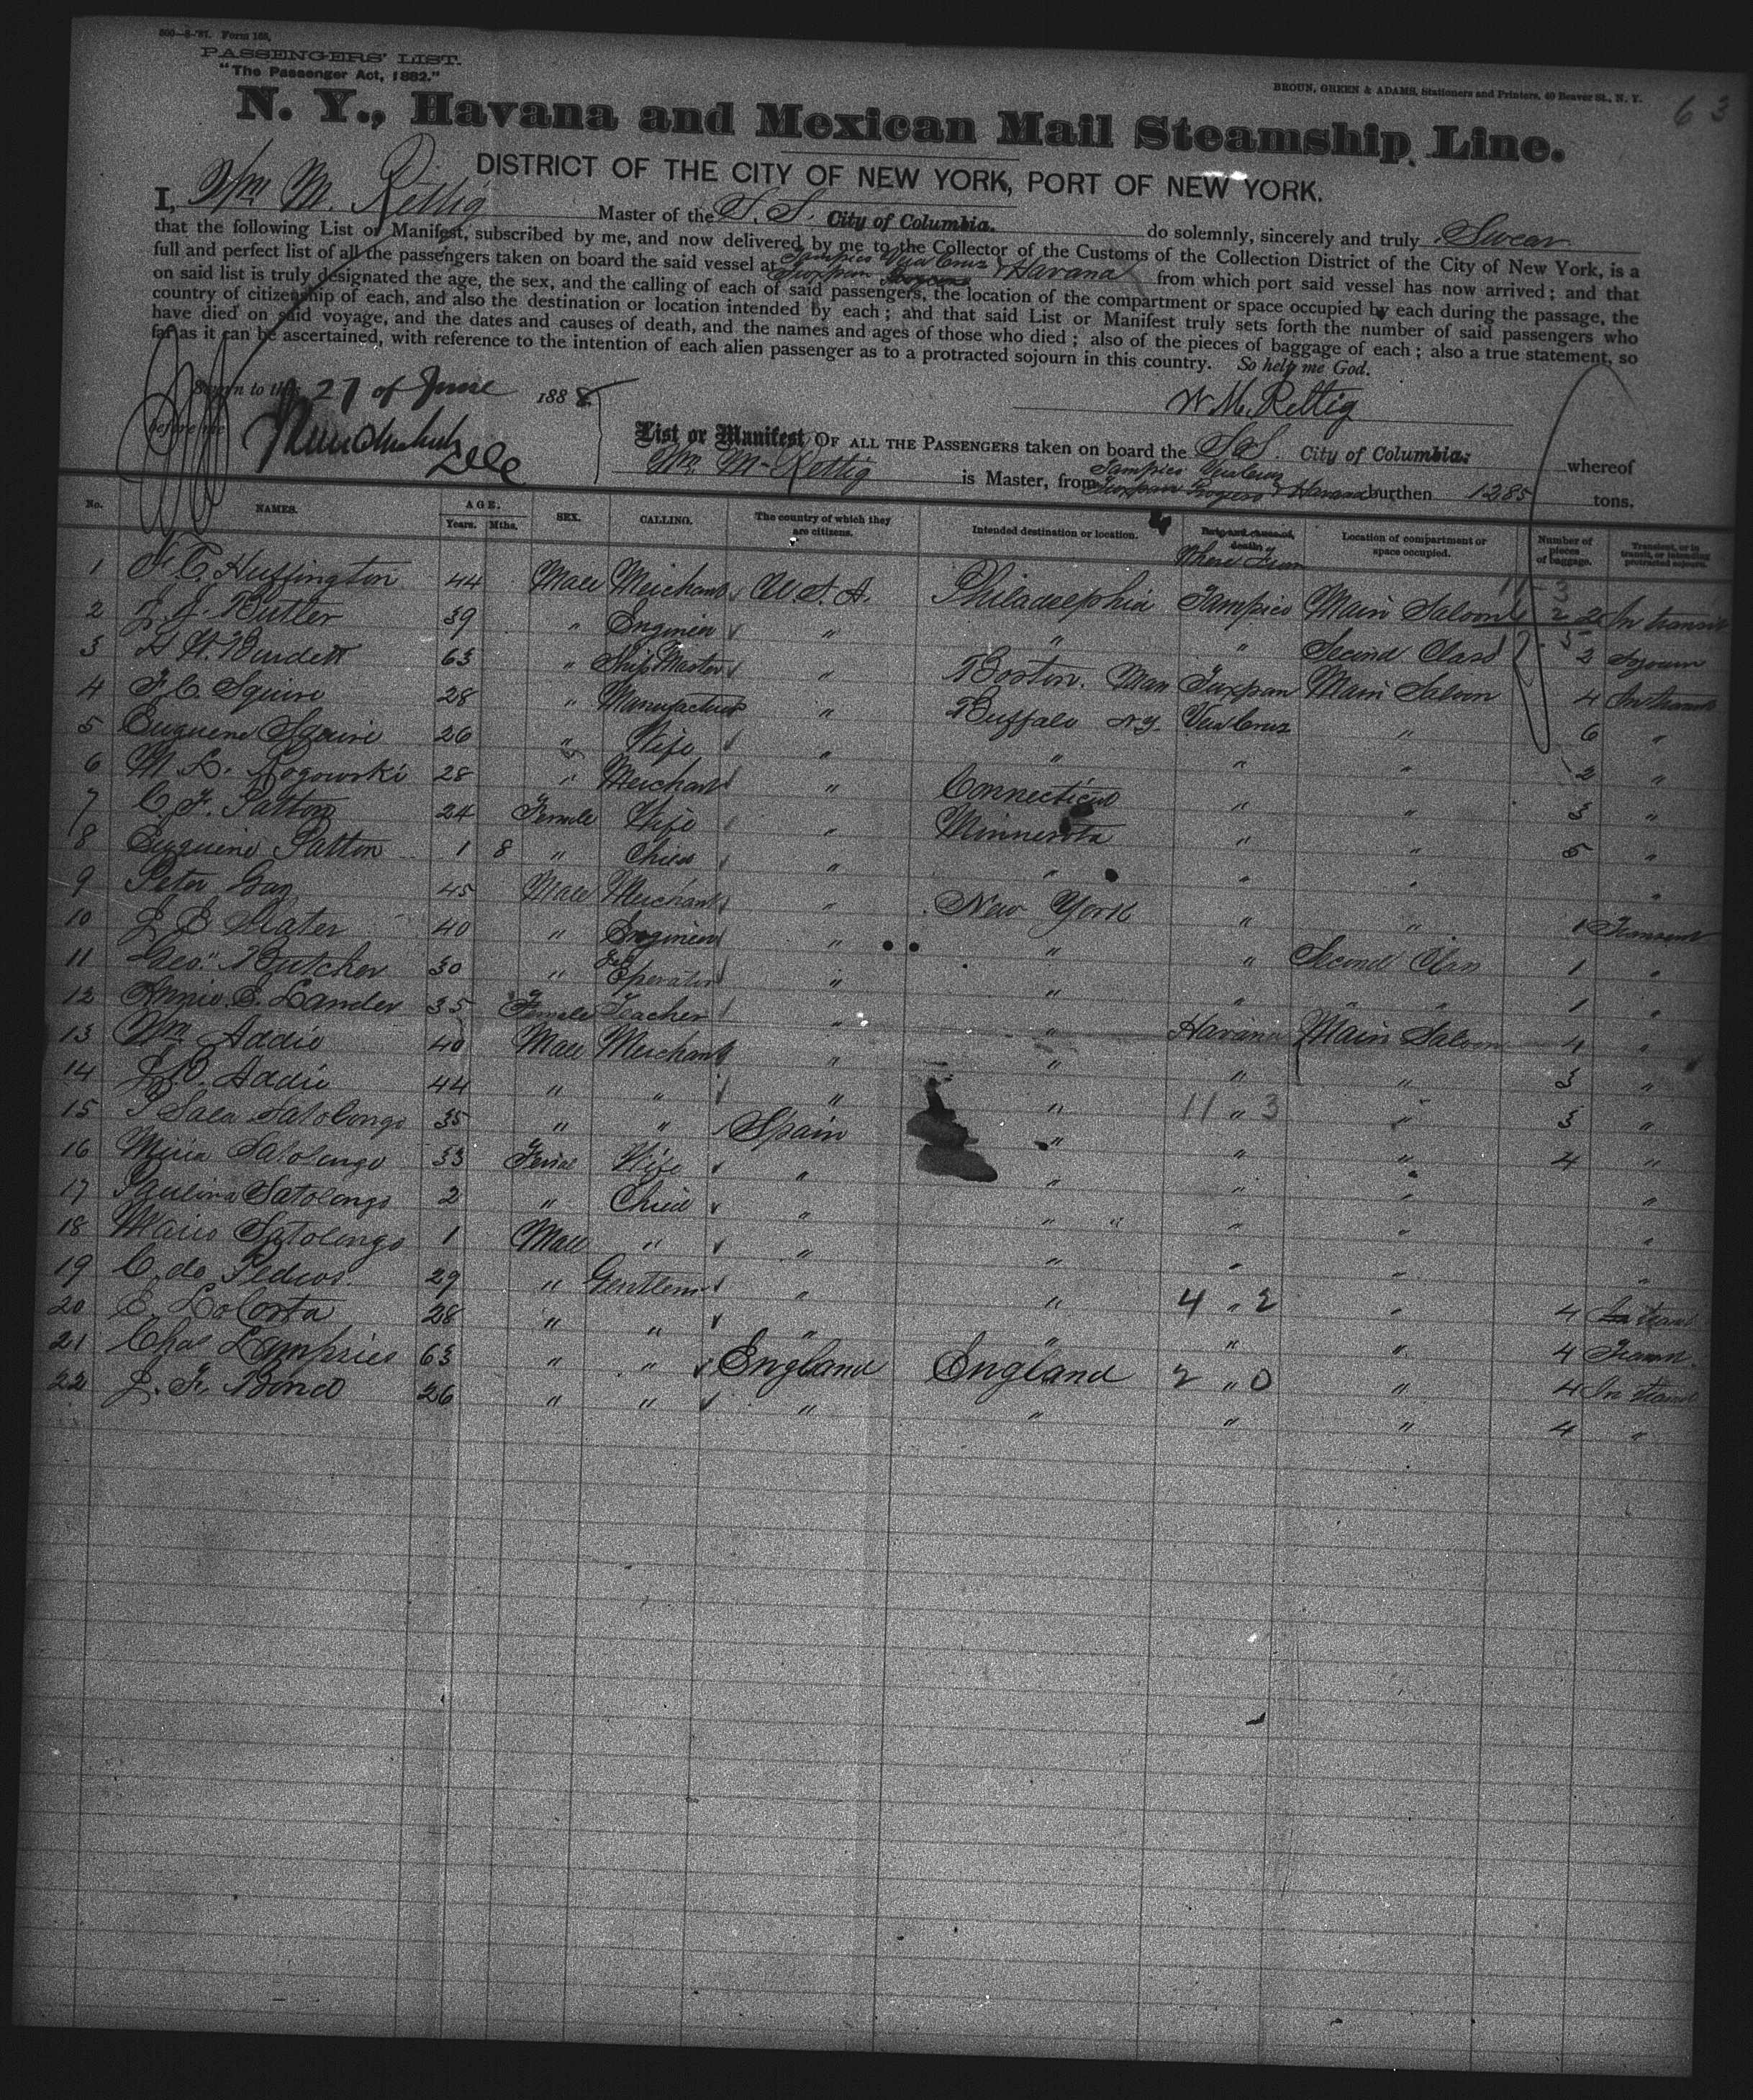 500—8-'87. Form 168,
PASSENGERS' LIST.
"The Passenger Act, 1882."
BROUN, GREEN & ADAMS, Stationers and Printers, 40 Beaver St., N. Y.
63
N. Y., Havana and Mexican Mail Steamship Line.
DISTRICT OF THE CITY OF NEW YORK, PORT OF NEW YORK.
I, Wm M. Rettig Master of the S. S. City of Columbia. do solemnly, sincerely and truly Swear
that the following List or Manifest, subscribed by me, and now delivered by me to the Collector of the Customs of the Collection District of the City of New York, is a
full and perfect list of all the passengers taken on board the said vessel at Tampico Vera Cruz Tuxpan Progreso & Havana from which port said vessel has now arrived; and that
on said list is truly designated the age, the sex, and the calling of each of said passengers, the location of the compartment or space occupied by each during the passage, the
country of citizenship of each, and also the destination or location intended by each; and that said List or Manifest truly sets forth the number of said passengers who
have died on said voyage, and the dates and causes of death, and the names and ages of those who died; also of the pieces of baggage of each; also a true statement, so
far as it can be ascertained, with reference to the intention of each alien passenger as to a protracted sojourn in this country. So help me God.
Sworn to this 27 of June 1888
W. M. Rettig
before me
List or Manifest OF ALL THE PASSENGERS taken on board the S.S. City of Columbia: whereof
Wm M. Rettig is Master, from Tampico Vera Cruz Tuxpan Progreso & Havana burthen 1285 tons.
No. NAMES. AGE. Years. Mths. SEX. CALLING. The country of which they are citizens. Intended destination or location. Date and cause of death. Where From Location of compartment or space occupied. Number of pieces of baggage. Transient, or in transit, or intending protracted sojourn.
1 F. C. Huffington 44 Male Merchant U.S.A. Philadelphia Tampico Main Saloon 2 In transit
2 J. J. Butler 39 " Engineer " " " Second Class 2 Sojourn
3 H. W. Burdett 63 " Ship Master " Boston. Mass Tuxpan Main Saloon 4 In transit
4 F. C. Squire 28 " Manufacturer " Buffalo N.Y. Vera Cruz " 6 "
5 Euguene Squire 26 " Wife " " " " 2 "
6 M. L. Rogowski 28 " Merchant " Connecticut " " 3 "
7 C. F. Patton 24 Female Wife " Minnesota " " 5 "
8 Euguene Patton 1 8 " Child " " " " "
9 Peter Gay 45 Male Merchant " New York " " 1 Transient
10 J E Slater 40 " Engineer " " " Second Class 1 "
11 Geo. Butcher 30 " Tel Operator " " " " " 1 "
12 Annie E. Lander 35 Female Teacher " " Havana Main Saloon 4 "
13 Wm Addie 40 Male Merchant " " " " 3 "
14 J. D. Addie 44 " " " " 11 " 3 " 3 "
15 P Sala Satolongo 35 " " Spain " " " 4 "
16 Miria Satolongo 33 Female Wife " " " " "
17 Paulina Satolongo 2 " Child " " " " " "
18 Mario Satolongo 1 Male " " " " " "
19 C. de Pedros 29 " Gentleman " " 4 " 2 " 4 In trans
20 E. LaCosta 28 " " " " " " 4 Trans.
21 Chas Lamprie 63 " " England England 2 " 0 " 4 In trans
22 J. F. Bond 26 " " " " " " 4 "